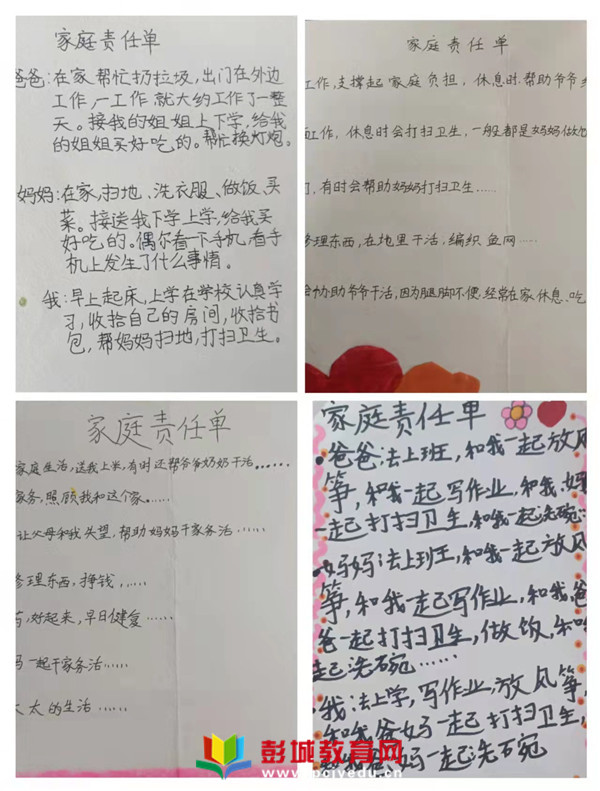 家庭责任单
爸爸:在家帮忙扔垃圾,出门在外边
工作,一工作就大约工作了一整
天。接我的姐姐上下学,给我
的姐姐买好吃的。帮忙换灯炮。
妈妈:在家,扫地、洗衣服、做饭、买
菜。接送我下学上学,给我买
好吃的。偶尔看一下手机,看手
机上发生了什么事情。
我:早上起床,上学在学校认真学
习,收拾自己的房间,收拾书
包,帮妈妈扫地,打扫卫生。
家庭责任单
工作,支撑起家庭负担,休息时帮助爷爷
工作,休息时会打扫卫生,一般都是妈妈做饭
,有时会帮助妈妈打扫卫生……
修理东西,在地里干活,编织鱼网……
会协助爷爷干活,因为腿脚不便经常在家休息、吃
家庭责任单
家庭生活,送我上学,有时还帮爷爷奶奶干活……
家务,照顾我和这个家……
让父母和我失望,帮助妈妈干家务活……
修理东西,挣钱……
药,好起来,早日健复……
妈一起干家务活……
太太的生活……
家庭责任单
爸爸:去上班,和我一起放风
筝,和我一起写作业,和我、妈
一起打扫卫生,和我一起洗碗……
妈妈:去上班,和我一起放风
筝,和我一起写作业,和我、爸
爸一起打扫卫生,做饭,和
起洗碗……
我:去上学,写作业,放风筝,
和我爸妈一起打扫卫生,
妈一起洗碗
彭城教育网
www.pcjyedu.cn